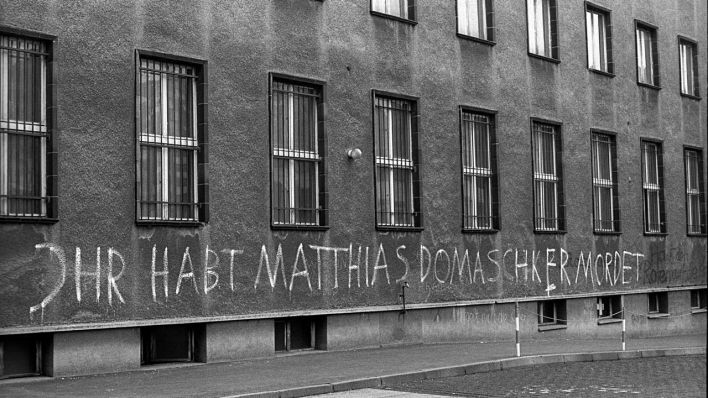 IHR HABT MATTHIAS DOMASCHKE ERMORDET